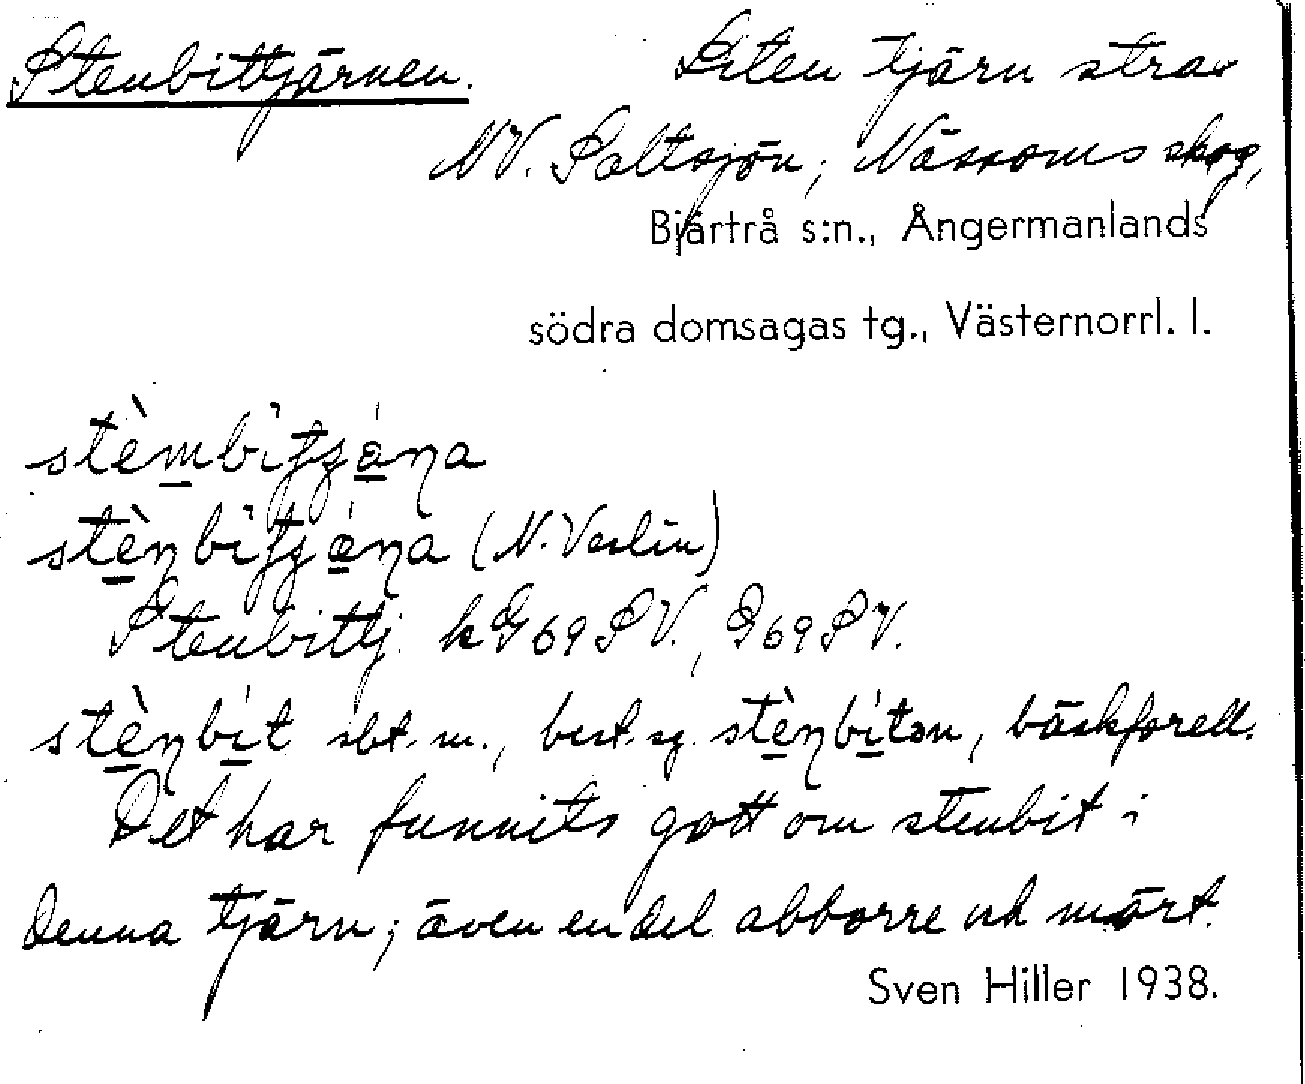 Stenbittjärnen. Liten tjärn strax
NV. Saltsjön, Nässoms skog,
Bjärtrå s:n., Ångermanlands
södra domsagas tg., Västernorrl. l.
(N. Veslin)
Stenbittj. k G 69 SV., G 69 SV.
sbt. m., best. sg. bäckforell.
Det har funnits gott om stenbit i
denna tjärn; även en del abborre och mört.
Sven Hiller 1938.